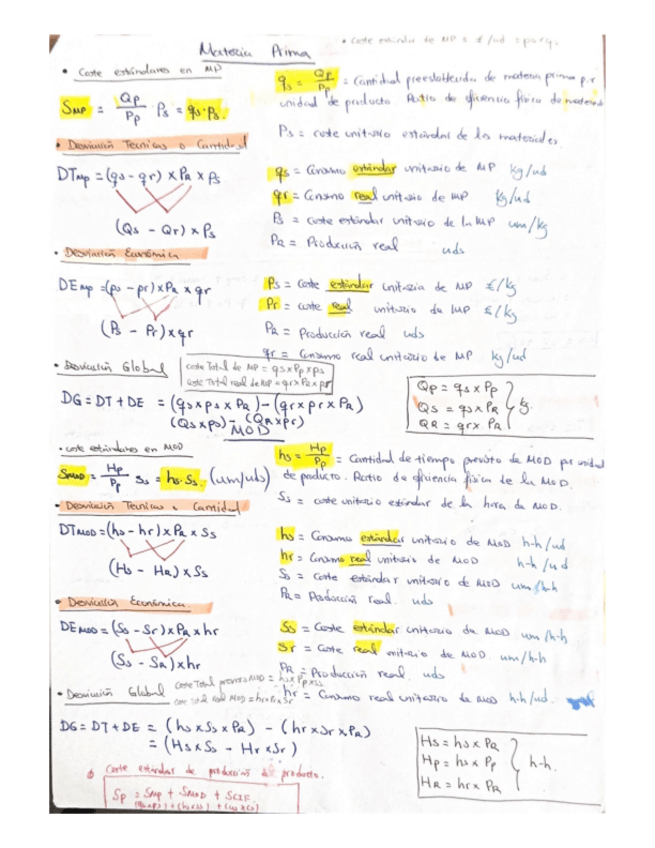 • Coste estándar de MP s €/ud = ps×qs.
Materia Prima
• Coste estándares en MP
S_MP = Qp/Pp · Ps = qs·Ps.
qs = Qp/Pp = Cantidad preestablecida de materia prima por
unidad de producto. Ratio de eficiencia física de materiales
Ps = coste unitario estándar de los materiales.
• Desviación Técnicas o Cantidad
DT_MP = (qs - qr) × PR × Ps
(Qs - Qr) × Ps
qs = Consumo estándar unitario de MP kg/ud
qr = Consumo real unitario de MP kg/ud
Ps = coste estándar unitario de la MP um/kg
PR = Producción real uds
• Desviación Económica
DE_MP = (ps - pr) × PR × qr
(Ps - Pr) × qr
Ps = coste estándar unitaria de MP €/kg
Pr = coste real unitario de MP €/kg
PR = Producción real uds
qr = Consumo real unitario de MP kg/ud
• Desviación Global
Coste Total de MP = qs × Pp × ps
Coste Total real de MP = qr × PR × pr
DG = DT + DE = (qs × ps × PR) - (qr × pr × PR)
(Qs × ps) - (QR × pr)
Qp = qs × Pp
Qs = qs × PR
QR = qr × PR
kg.
MOD
• coste estándares en MOD
S_MOD = Hp/Pp · Ss = hs·Ss. (um/uds)
hs = Hp/Pp = Cantidad de tiempo previsto de MOD por unidad
de producto. Ratio de eficiencia física de la MOD.
Ss = coste unitario estándar de la hora de MOD.
• Desviación Técnicas o Cantidad
DT_MOD = (hs - hr) × PR × Ss
(Hs - HR) × Ss
hs = Consumo estándar unitario de MOD h-h/ud
hr = Consumo real unitario de MOD h-h/ud
Ss = coste estándar unitario de MOD um/h-h
PR = Producción real. uds
• Desviación Económica
DE_MOD = (Ss - Sr) × PR × hr
(Ss - SR) × hr
Ss = Coste estándar unitario de MOD um/h-h
Sr = Coste real unitario de MOD. um/h-h
PR = Producción real. uds
hr = Consumo real unitario de MOD h-h/ud.
• Desviación Global
Coste Total previsto MOD = hs × Pp × Ss
coste total real MOD = hr × PR × Sr
DG = DT + DE = (hs × Ss × PR) - (hr × Sr × PR)
= (Hs × Ss - Hr × Sr)
Hs = hs × PR
Hp = hs × Pp
HR = hr × PR
h-h.
Coste estándar de producción de producto.
Sp = S_MP + S_MOD + S_CIF.
(qs×ps) + (hs×ss) + (us×cs)